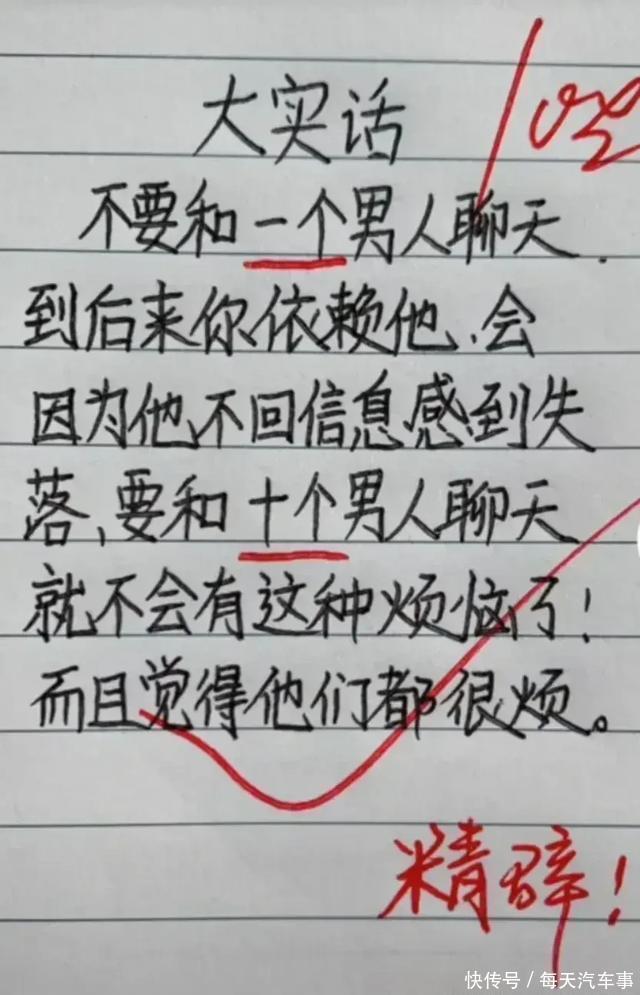 大实话
100
不要和一个男人聊天.
到后来你依赖他、会
因为他不回信息感到失
落、要和十个男人聊天
就不会有这种烦恼了!
而且觉得他们都很烦。
精辟!
快传号/每天汽车事